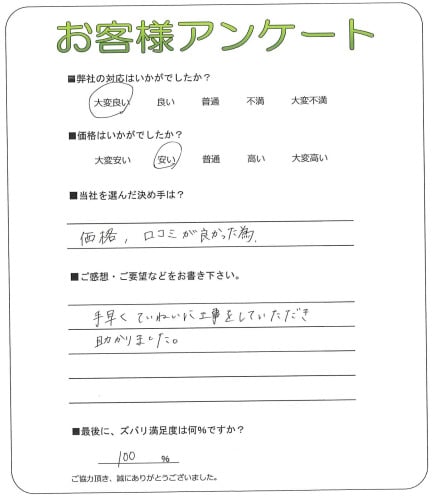 お客様アンケート
■弊社の対応はいかがでしたか？
大変良い 良い 普通 不満 大変不満
■価格はいかがでしたか？
大変安い 安い 普通 高い 大変高い
■当社を選んだ決め手は？
価格，口コミが良かった為．
■ご感想・ご要望などをお書き下さい。
手早くていねいに工事をしていただき
助かりました。
■最後に、ズバリ満足度は何%ですか？
100 %
ご協力頂き、誠にありがとうございました。